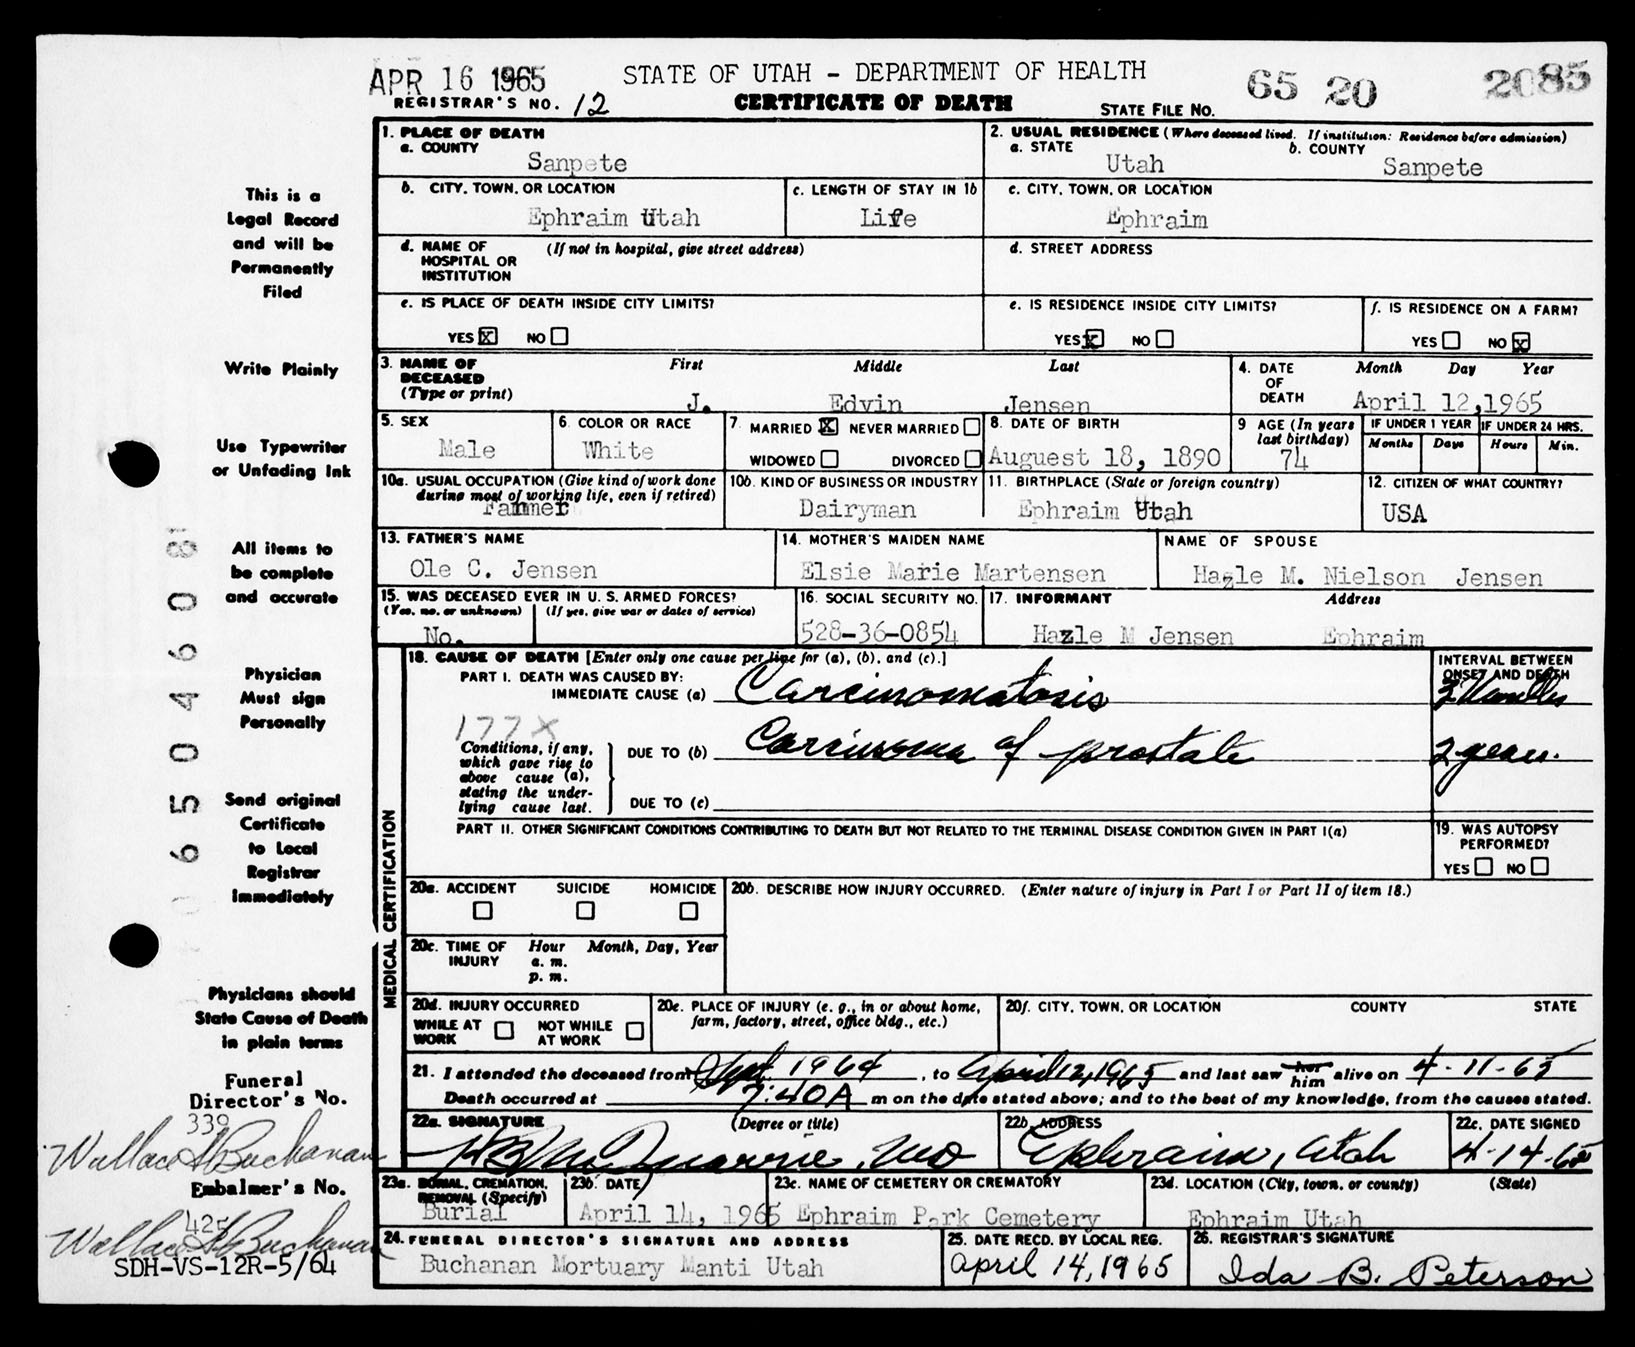 APR 16 1965
STATE OF UTAH - DEPARTMENT OF HEALTH
65 20 2085
REGISTRAR'S NO. 12
CERTIFICATE OF DEATH
STATE FILE NO.
This is a
Legal Record
and will be
Permanently
Filed
Write Plainly
Use Typewriter
or Unfading Ink
All items to
be complete
and accurate
Physician
Must sign
Personally
Send original
Certificate
to Local
Registrar
immediately
Physicians should
State Cause of Death
in plain terms
Funeral
Director's No.
339
Wallace Buchanan
Embalmer's No.
425
Wallace Buchanan
SDH-VS-12R-5/64
1. PLACE OF DEATH
a. COUNTY
Sanpete
2. USUAL RESIDENCE (Where deceased lived. If institution: Residence before admission)
a. STATE b. COUNTY
Utah Sanpete
b. CITY, TOWN, OR LOCATION
Ephraim Utah
c. LENGTH OF STAY IN 1b
Life
c. CITY, TOWN, OR LOCATION
Ephraim
d. NAME OF HOSPITAL OR INSTITUTION (If not in hospital, give street address)
d. STREET ADDRESS
e. IS PLACE OF DEATH INSIDE CITY LIMITS?
YES X NO
e. IS RESIDENCE INSIDE CITY LIMITS?
YES X NO
f. IS RESIDENCE ON A FARM?
YES NO X
3. NAME OF DECEASED (Type or print) First Middle Last
J. Edvin Jensen
4. DATE OF DEATH Month Day Year
April 12,1965
5. SEX
Male
6. COLOR OR RACE
White
7. MARRIED X NEVER MARRIED
WIDOWED DIVORCED
8. DATE OF BIRTH
Auguest 18, 1890
9 AGE (In years last birthday)
74
IF UNDER 1 YEAR IF UNDER 24 HRS.
Months Days Hours Min.
10a. USUAL OCCUPATION (Give kind of work done during most of working life, even if retired)
Farmer
10b. KIND OF BUSINESS OR INDUSTRY
Dairyman
11. BIRTHPLACE (State or foreign country)
Ephraim Utah
12. CITIZEN OF WHAT COUNTRY?
USA
13. FATHER'S NAME
Ole C. Jensen
14. MOTHER'S MAIDEN NAME
Elsie Marie Martensen
NAME OF SPOUSE
Hazle M. Nielson Jensen
15. WAS DECEASED EVER IN U. S. ARMED FORCES?
(Yes, no, or unknown) (If yes, give war or dates of service)
No.
16. SOCIAL SECURITY NO.
528-36-0854
17. INFORMANT Address
Hazle M Jensen Ephraim
MEDICAL CERTIFICATION
18. CAUSE OF DEATH [Enter only one cause per line for (a), (b), and (c).]
INTERVAL BETWEEN ONSET AND DEATH
PART I. DEATH WAS CAUSED BY:
IMMEDIATE CAUSE (a) Carcinomatosis 3 Months
177X
Conditions, if any, which gave rise to above cause (a), stating the under- lying cause last.
DUE TO (b) Carcinoma of prostate 2 years.
DUE TO (c)
PART II. OTHER SIGNIFICANT CONDITIONS CONTRIBUTING TO DEATH BUT NOT RELATED TO THE TERMINAL DISEASE CONDITION GIVEN IN PART I(a)
19. WAS AUTOPSY PERFORMED?
YES NO
20a. ACCIDENT SUICIDE HOMICIDE
20b. DESCRIBE HOW INJURY OCCURRED. (Enter nature of injury in Part I or Part II of item 18.)
20c. TIME OF INJURY Hour Month, Day, Year
a. m.
p. m.
20d. INJURY OCCURRED
WHILE AT WORK NOT WHILE AT WORK
20e. PLACE OF INJURY (e. g., in or about home, farm, factory, street, office bldg., etc.)
20f. CITY, TOWN, OR LOCATION COUNTY STATE
21. I attended the deceased from Sept. 1964, to April 12, 1965 and last saw her him alive on 4-11-65
Death occurred at 7:40A m on the date stated above; and to the best of my knowledge, from the causes stated.
22a. SIGNATURE (Degree or title)
MD
22b. ADDRESS
Ephraim, Utah
22c. DATE SIGNED
4-14-65
23a. BURIAL, CREMATION, REMOVAL (Specify)
Burial
23b. DATE
April 14, 1965
23c. NAME OF CEMETERY OR CREMATORY
Ephraim Park Cemetery
23d. LOCATION (City, town, or county) (State)
Ephraim Utah
24. FUNERAL DIRECTOR'S SIGNATURE AND ADDRESS
Buchanan Mortuary Manti Utah
25. DATE RECD. BY LOCAL REG.
April 14, 1965
26. REGISTRAR'S SIGNATURE
Ida B. Peterson